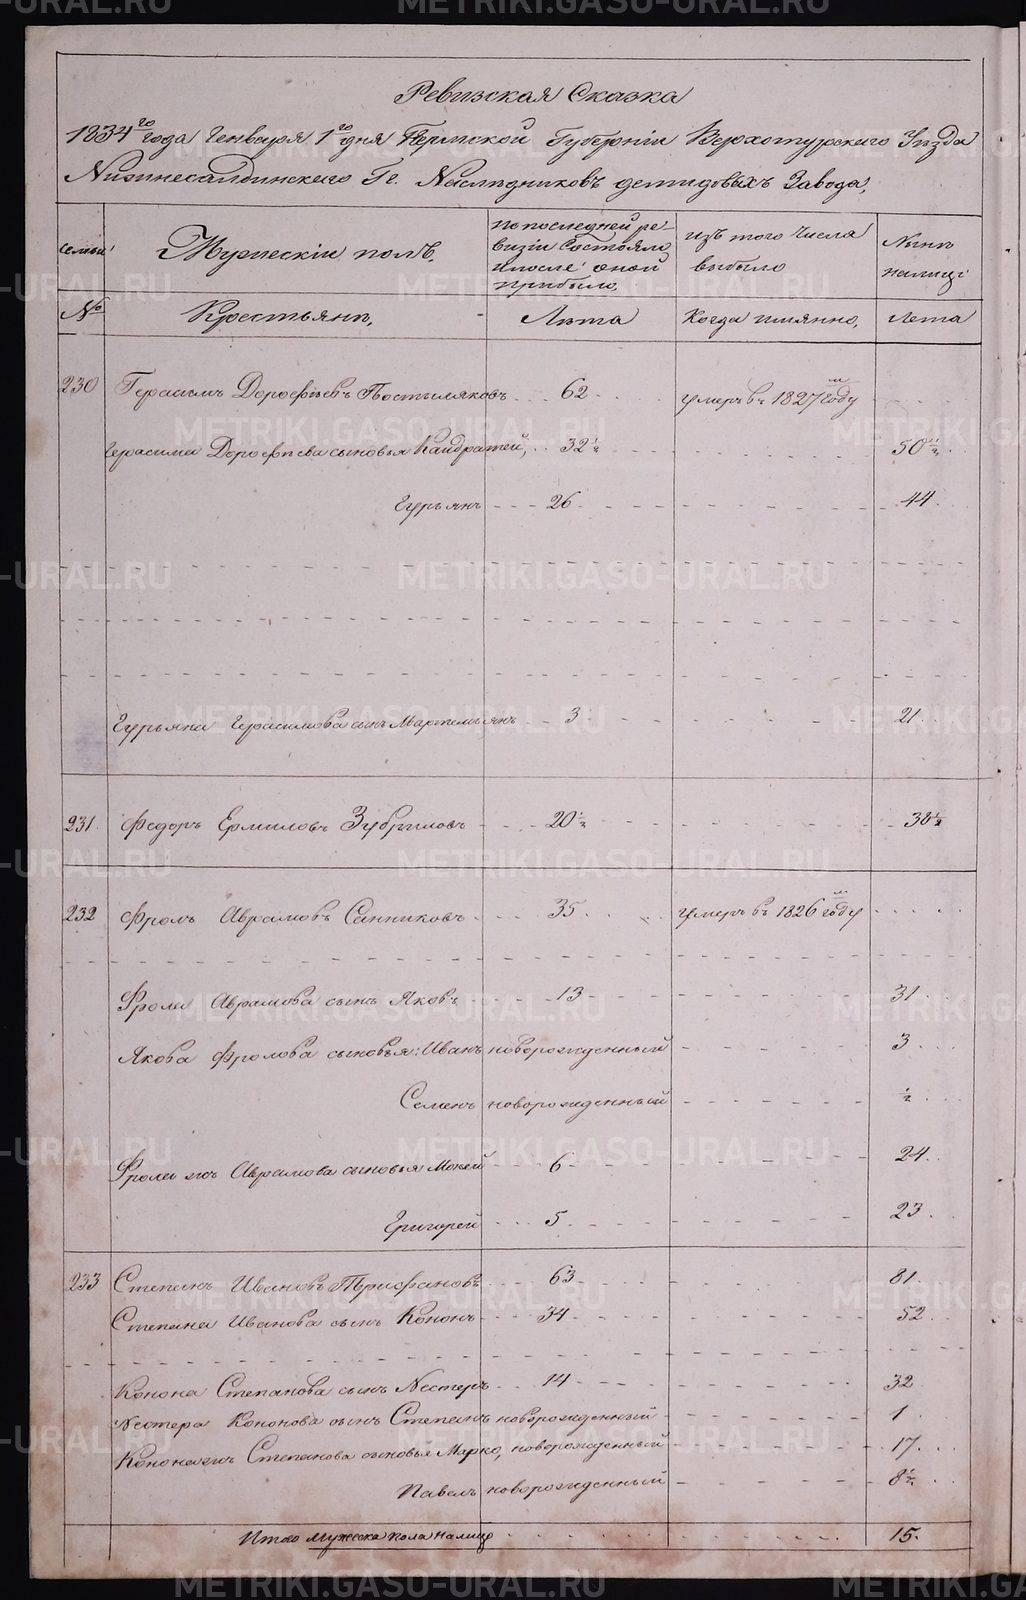 Ревизская Сказка
1834го года Генваря 1го дня Пермской Губернiи Верхотурскаго Уѣзда
Нижнесалдинскаго Гг. Наслѣдниковъ демидовыхъ Завода,
Семьи
Мужескiй полъ.
по последней ре-
визiи Состояло
и после оной
прибыло.
изъ того Числа
выбыло
Нынѣ
налице
№
Крестьянѣ,
Лѣта
Когда имянно,
Лета
230 Герасимъ Дорофѣевъ Постыляковъ 62 умеръ въ 1827м году
Герасима Дорофѣева сыновья Кандратей, 32 1/2 50 1/2
Гурьянъ 26 44
Гурьяна Герасимова сынъ Мартемьянъ 3 21
231 Федоръ Ермиловъ Зубриловъ 20 1/2 38 1/2
232 Фролъ Аврамовъ Санниковъ 35 умеръ въ 1826м году
Фрола Аврамова сынъ Яковъ 13 31
Якова Фролова сыновья: Иванъ новорожденный 3
Семенъ новорожденный 1/2
Фрола жъ Аврамова сыновья Мокей 6 24
Григорей 5 23
233 Степанъ Ивановъ Трифановъ 63 81
Степана Иванова сынъ Кононъ 34 52
Конона Степанова сынъ Нестеръ 14 32
Нестера Кононова сынъ Степанъ новорожденный 1
Конона жъ Степанова сыновья Марко, новорожденный 17
Павелъ новорожденный 8 1/2
Итого мужеска пола налицо 15.
METRIKI.GASO-URAL.RU